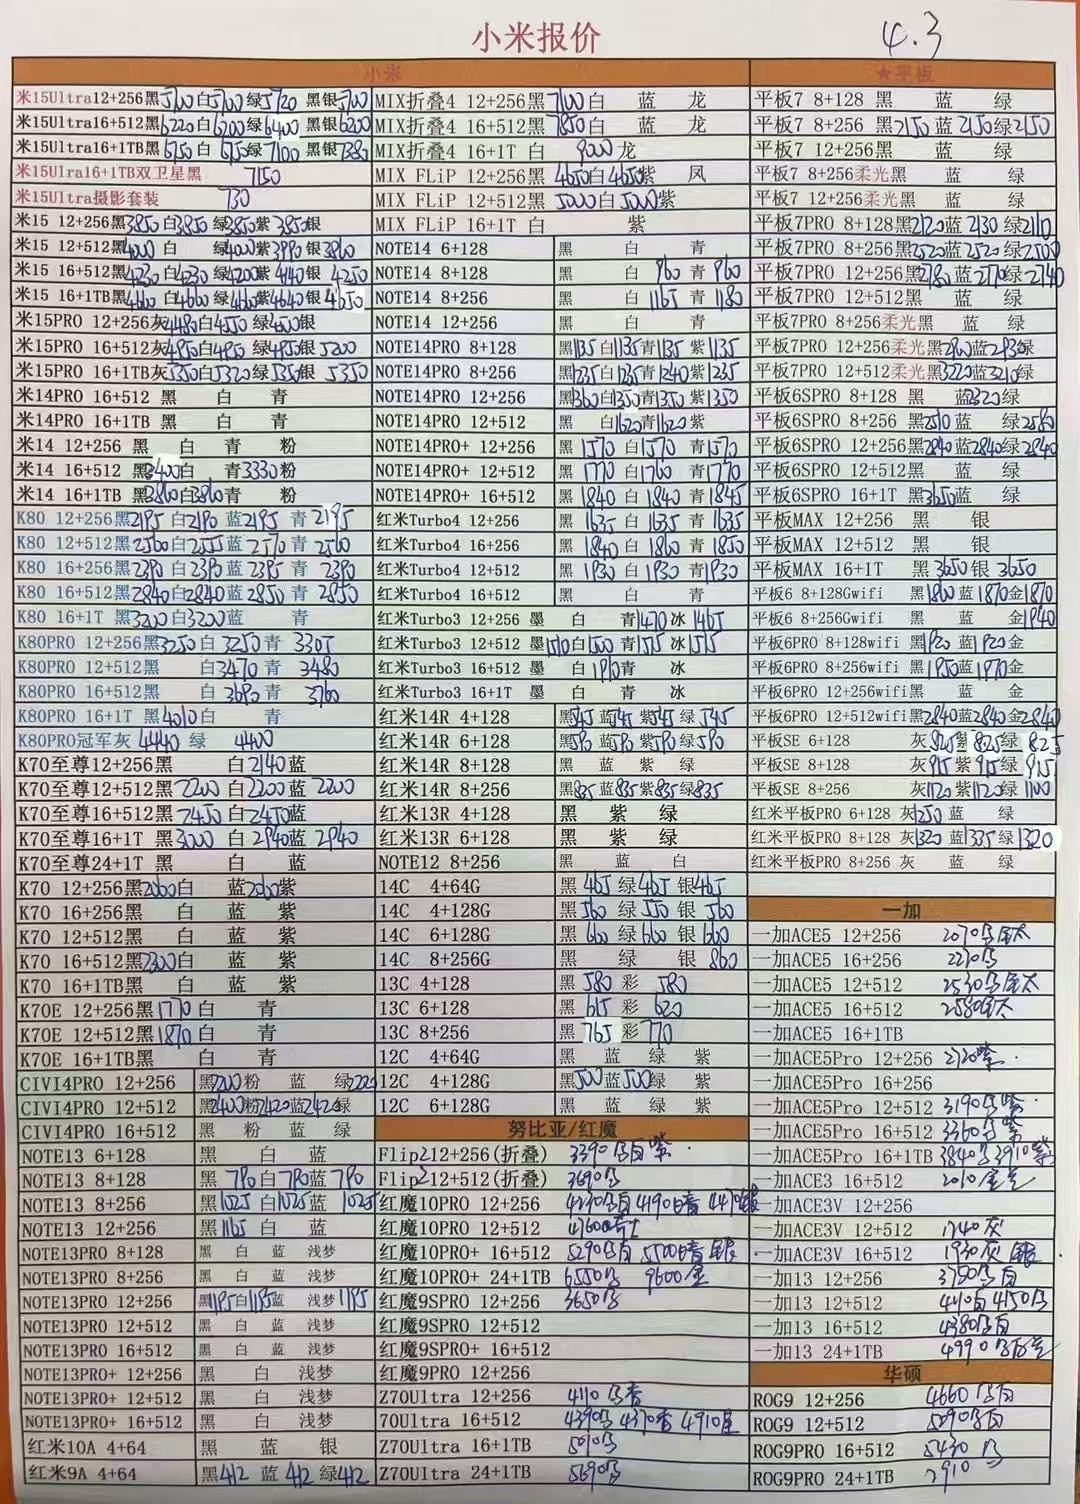 小米报价 4.3
小米
米15Ultra12+256黑5700白5700绿5720 黑银5700
米15Ultra16+512黑6220白6200绿6400 黑银6200
米15Ultra16+1TB黑6750白6750绿7100 黑银7380
米15Ulra16+1TB双卫星黑 7150
米15Ultra摄影套装 730
米15 12+256黑3850白3850绿3850紫3850银
米15 12+512黑4000白 绿4000紫3990银3860
米15 16+512黑4230白4230绿4200紫4140银4250
米15 16+1TB黑4660白4660绿4660紫4640银4650
米15PRO 12+256灰4480白4550绿4500银
米15PRO 16+512灰4950白4950绿4950银5200
米15PRO 16+1TB灰5350白5320绿5350银5350
米14PRO 16+512 黑 白 青
米14PRO 16+1TB 黑 白 青
米14 12+256 黑 白 青 粉
米14 16+512 黑3400白 青3330粉
米14 16+1TB 黑3860白3860青 粉
K80 12+256黑2195白2190蓝2195青2195
K80 12+512黑2560白2555蓝2570青2560
K80 16+256黑2390白2390蓝2395青2390
K80 16+512黑2840白2840蓝2850青2850
K80 16+1T 黑3200白3200蓝 青
K80PRO 12+256黑3250白3250青3305
K80PRO 12+512黑 白3470青3480
K80PRO 16+512黑 白3690青3760
K80PRO 16+1T 黑4010白 青
K80PRO冠军灰 4440 绿 4400
K70至尊12+256黑 白2140蓝
K70至尊12+512黑2200白2200蓝2200
K70至尊16+512黑2450白2450蓝
K70至尊16+1T 黑3000白2940蓝2940
K70至尊24+1T 黑 白 蓝
K70 12+256黑2060白 蓝2060紫
K70 16+256黑 白 蓝 紫
K70 12+512黑 白 蓝 紫
K70 16+512黑2300白 蓝 紫
K70 16+1TB黑 白 蓝 紫
K70E 12+256黑1770白 青
K70E 12+512黑1870白 青
K70E 16+1TB黑 白 青
CIVI4PRO 12+256 黑2200粉 蓝 绿
CIVI4PRO 12+512 黑2400粉2420蓝2420绿
CIVI4PRO 16+512 黑 粉 蓝 绿
NOTE13 6+128 黑 白 蓝
NOTE13 8+128 黑790白790蓝790
NOTE13 8+256 黑1025白1025蓝1025
NOTE13 12+256 黑1165白 蓝
NOTE13PRO 8+128 黑 白 蓝 浅梦
NOTE13PRO 8+256 黑 白 蓝 浅梦
NOTE13PRO 12+256 黑1195白1195蓝 浅梦1195
NOTE13PRO 12+512 黑 白 蓝 浅梦
NOTE13PRO 16+512 黑 白 蓝 浅梦
NOTE13PRO+ 12+256 黑 白 浅梦
NOTE13PRO+ 12+512 黑 白 浅梦
NOTE13PRO+ 16+512 黑 白 浅梦
红米10A 4+64 黑 蓝 银
红米9A 4+64 黑412蓝412绿412
MIX折叠4 12+256黑7100白 蓝 龙
MIX折叠4 16+512黑7850白 蓝 龙
MIX折叠4 16+1T 白 9000龙
MIX FLiP 12+256黑4650白4650紫 凤
MIX FLiP 12+512黑5000白5000紫
MIX FLiP 16+1T 白 紫
NOTE14 6+128 黑 白 青
NOTE14 8+128 黑 白960青960
NOTE14 8+256 黑 白1165青1180
NOTE14 12+256 黑 白 青
NOTE14PRO 8+128 黑1135白1135青1135紫1135
NOTE14PRO 8+256 黑1235白1235青1240紫1235
NOTE14PRO 12+256 黑1360白1350青1350紫1350
NOTE14PRO 12+512 黑 白1620青1620紫
NOTE14PRO+ 12+256 黑1570白1570青1570
NOTE14PRO+ 12+512 黑1770白1760青1770
NOTE14PRO+ 16+512 黑1840白1840青1845
红米Turbo4 12+256 黑1635白1635青1635
红米Turbo4 16+256 黑1840白1860青1850
红米Turbo4 12+512 黑1930白1930青1930
红米Turbo4 16+512 黑 白 青
红米Turbo3 12+256 墨 白 青1470冰1465
红米Turbo3 12+512 墨1510白1500青1515冰1515
红米Turbo3 16+512 墨 白1910青 冰
红米Turbo3 16+1T 墨 白 青 冰
红米14R 4+128 黑545蓝545紫545绿545
红米14R 6+128 黑590蓝590紫590绿590
红米14R 8+128 黑 蓝 紫 绿
红米14R 8+256 黑835蓝835紫835绿835
红米13R 4+128 黑 紫 绿
红米13R 6+128 黑 紫 绿
NOTE12 8+256 黑 蓝 白
14C 4+64G 黑465绿465银465
14C 4+128G 黑560绿550银560
14C 6+128G 黑660绿660银660
14C 8+256G 黑 绿 银860
13C 4+128 黑580彩580
13C 6+128 黑615彩620
13C 8+256 黑765彩770
12C 4+64G 黑 蓝 绿 紫
12C 4+128G 黑500蓝500绿 紫
12C 6+128G 黑 蓝 绿 紫
努比亚/红魔
Flip212+256(折叠) 3390 白紫
Flip212+512(折叠) 3690
红魔10PRO 12+256 白4190暗
红魔10PRO 12+512 4760
红魔10PRO+ 16+512 5290 白5500暗 银
红魔10PRO+ 24+1TB 6550 9600
红魔9SPRO 12+256 3650
红魔9SPRO 12+512
红魔9SPRO+ 16+512
红魔9PRO 12+256
Z70Ultra 12+256 4110
70Ultra 16+512 4390 4370 4910
Z70Ultra 16+1TB 5090
Z70Ultra 24+1TB 5690
★平板
平板7 8+128 黑 蓝 绿
平板7 8+256 黑2150蓝2150绿2150
平板7 12+256黑 蓝 绿
平板7 8+256柔光黑 蓝 绿
平板7 12+256柔光黑 蓝 绿
平板7PRO 8+128黑2120蓝2130绿2110
平板7PRO 8+256黑2520蓝2520绿2500
平板7PRO 12+256黑2780蓝2770绿2740
平板7PRO 12+512黑 蓝 绿
平板7PRO 8+256柔光黑 蓝 绿
平板7PRO 12+256柔光黑2900蓝2930绿
平板7PRO 12+512柔光黑3220蓝3210绿
平板6SPRO 8+128 黑 蓝2320绿
平板6SPRO 8+256 黑2510蓝 绿2580
平板6SPRO 12+256黑2840蓝2840绿2840
平板6SPRO 12+512黑 蓝 绿
平板6SPRO 16+1T 黑3650蓝 绿
平板MAX 12+256 黑 银
平板MAX 12+512 黑 银
平板MAX 16+1T 黑3650银3650
平板6 8+128Gwifi 黑1860蓝1870金1870
平板6 8+256Gwifi 黑 蓝 金1940
平板6PRO 8+128wifi 黑1920蓝1920金
平板6PRO 8+256wifi 黑1950蓝1970金
平板6PRO 12+256wifi黑 蓝 金
平板6PRO 12+512wifi黑2840蓝2840金2840
平板SE 6+128 灰825紫825绿825
平板SE 8+128 灰915紫915绿915
平板SE 8+256 灰1120紫1120绿1100
红米平板PRO 6+128 灰1250蓝 绿
红米平板PRO 8+128 灰1320蓝1335绿1320
红米平板PRO 8+256 灰 蓝 绿
一加
一加ACE5 12+256 2070 钛
一加ACE5 16+256 2270
一加ACE5 12+512 2530 钛
一加ACE5 16+512 2580 钛
一加ACE5 16+1TB
一加ACE5Pro 12+256 2720紫
一加ACE5Pro 16+256
一加ACE5Pro 12+512 3190 紫
一加ACE5Pro 16+512 3360 紫
一加ACE5Pro 16+1TB 3840 3910紫
一加ACE3 16+512 2010
一加ACE3V 12+256
一加ACE3V 12+512 1740灰
一加ACE3V 16+512 1930灰 银
一加13 12+256 3750 白
一加13 12+512 白4150
一加13 16+512 4380 白
一加13 24+1TB 4990
华硕
ROG9 12+256 4660 白
ROG9 12+512 5090 白
ROG9PRO 16+512 5430
ROG9PRO 24+1TB 7910